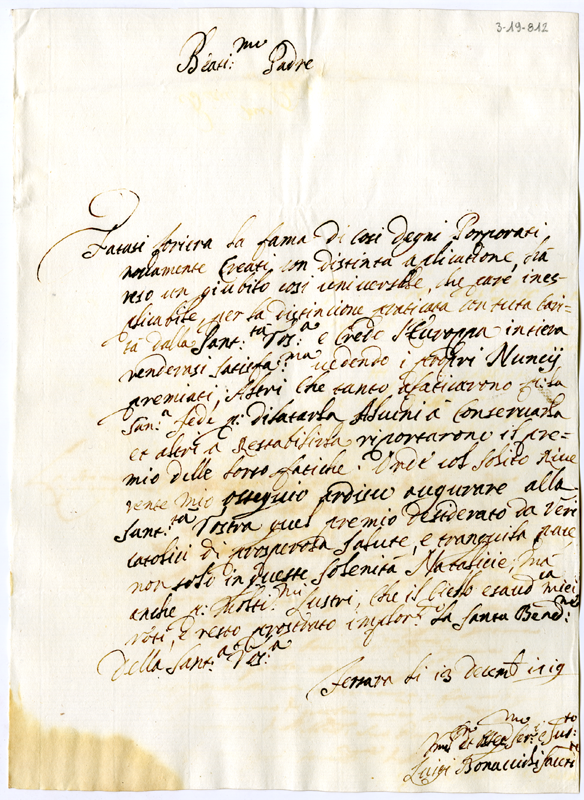 3-19-812
Beati:mo Padre
Fatasi foriera la fama di così degni Porporati
novamente Creati con distinta aplicatione, hà
reso un giubilo così universale, che pare ines-
plicabile, per la distincione praticata con tutta
dalla Sant:tà Vos:a e Credo l'Europpa intiera
rendersi satisfa:ma vedendo i proprij Nuncij
premiati, Altri che tanto afaticarono
San:a Sede p: dilatarla Alcuni à Conservarla
et altri à Restabilirla riportarono il pre-
mio delle loro fatiche. Onde col solito rive
rente mio ossequio ardisco augurare alla
Sant:tà Vostra quel premio desiderato da veri
Catolici di prosperosa salute, e tranquila pace,
non solo in queste solenità Natalicie, mà
anche p: molti:mi lustri, che il Cielo esaud miei
voti, e resto prostrato implor: la Santa Bened:ne
della Sant:tà Vos:a
Ferrara li 13 Decemb 1719
Luigi Bonaccioli